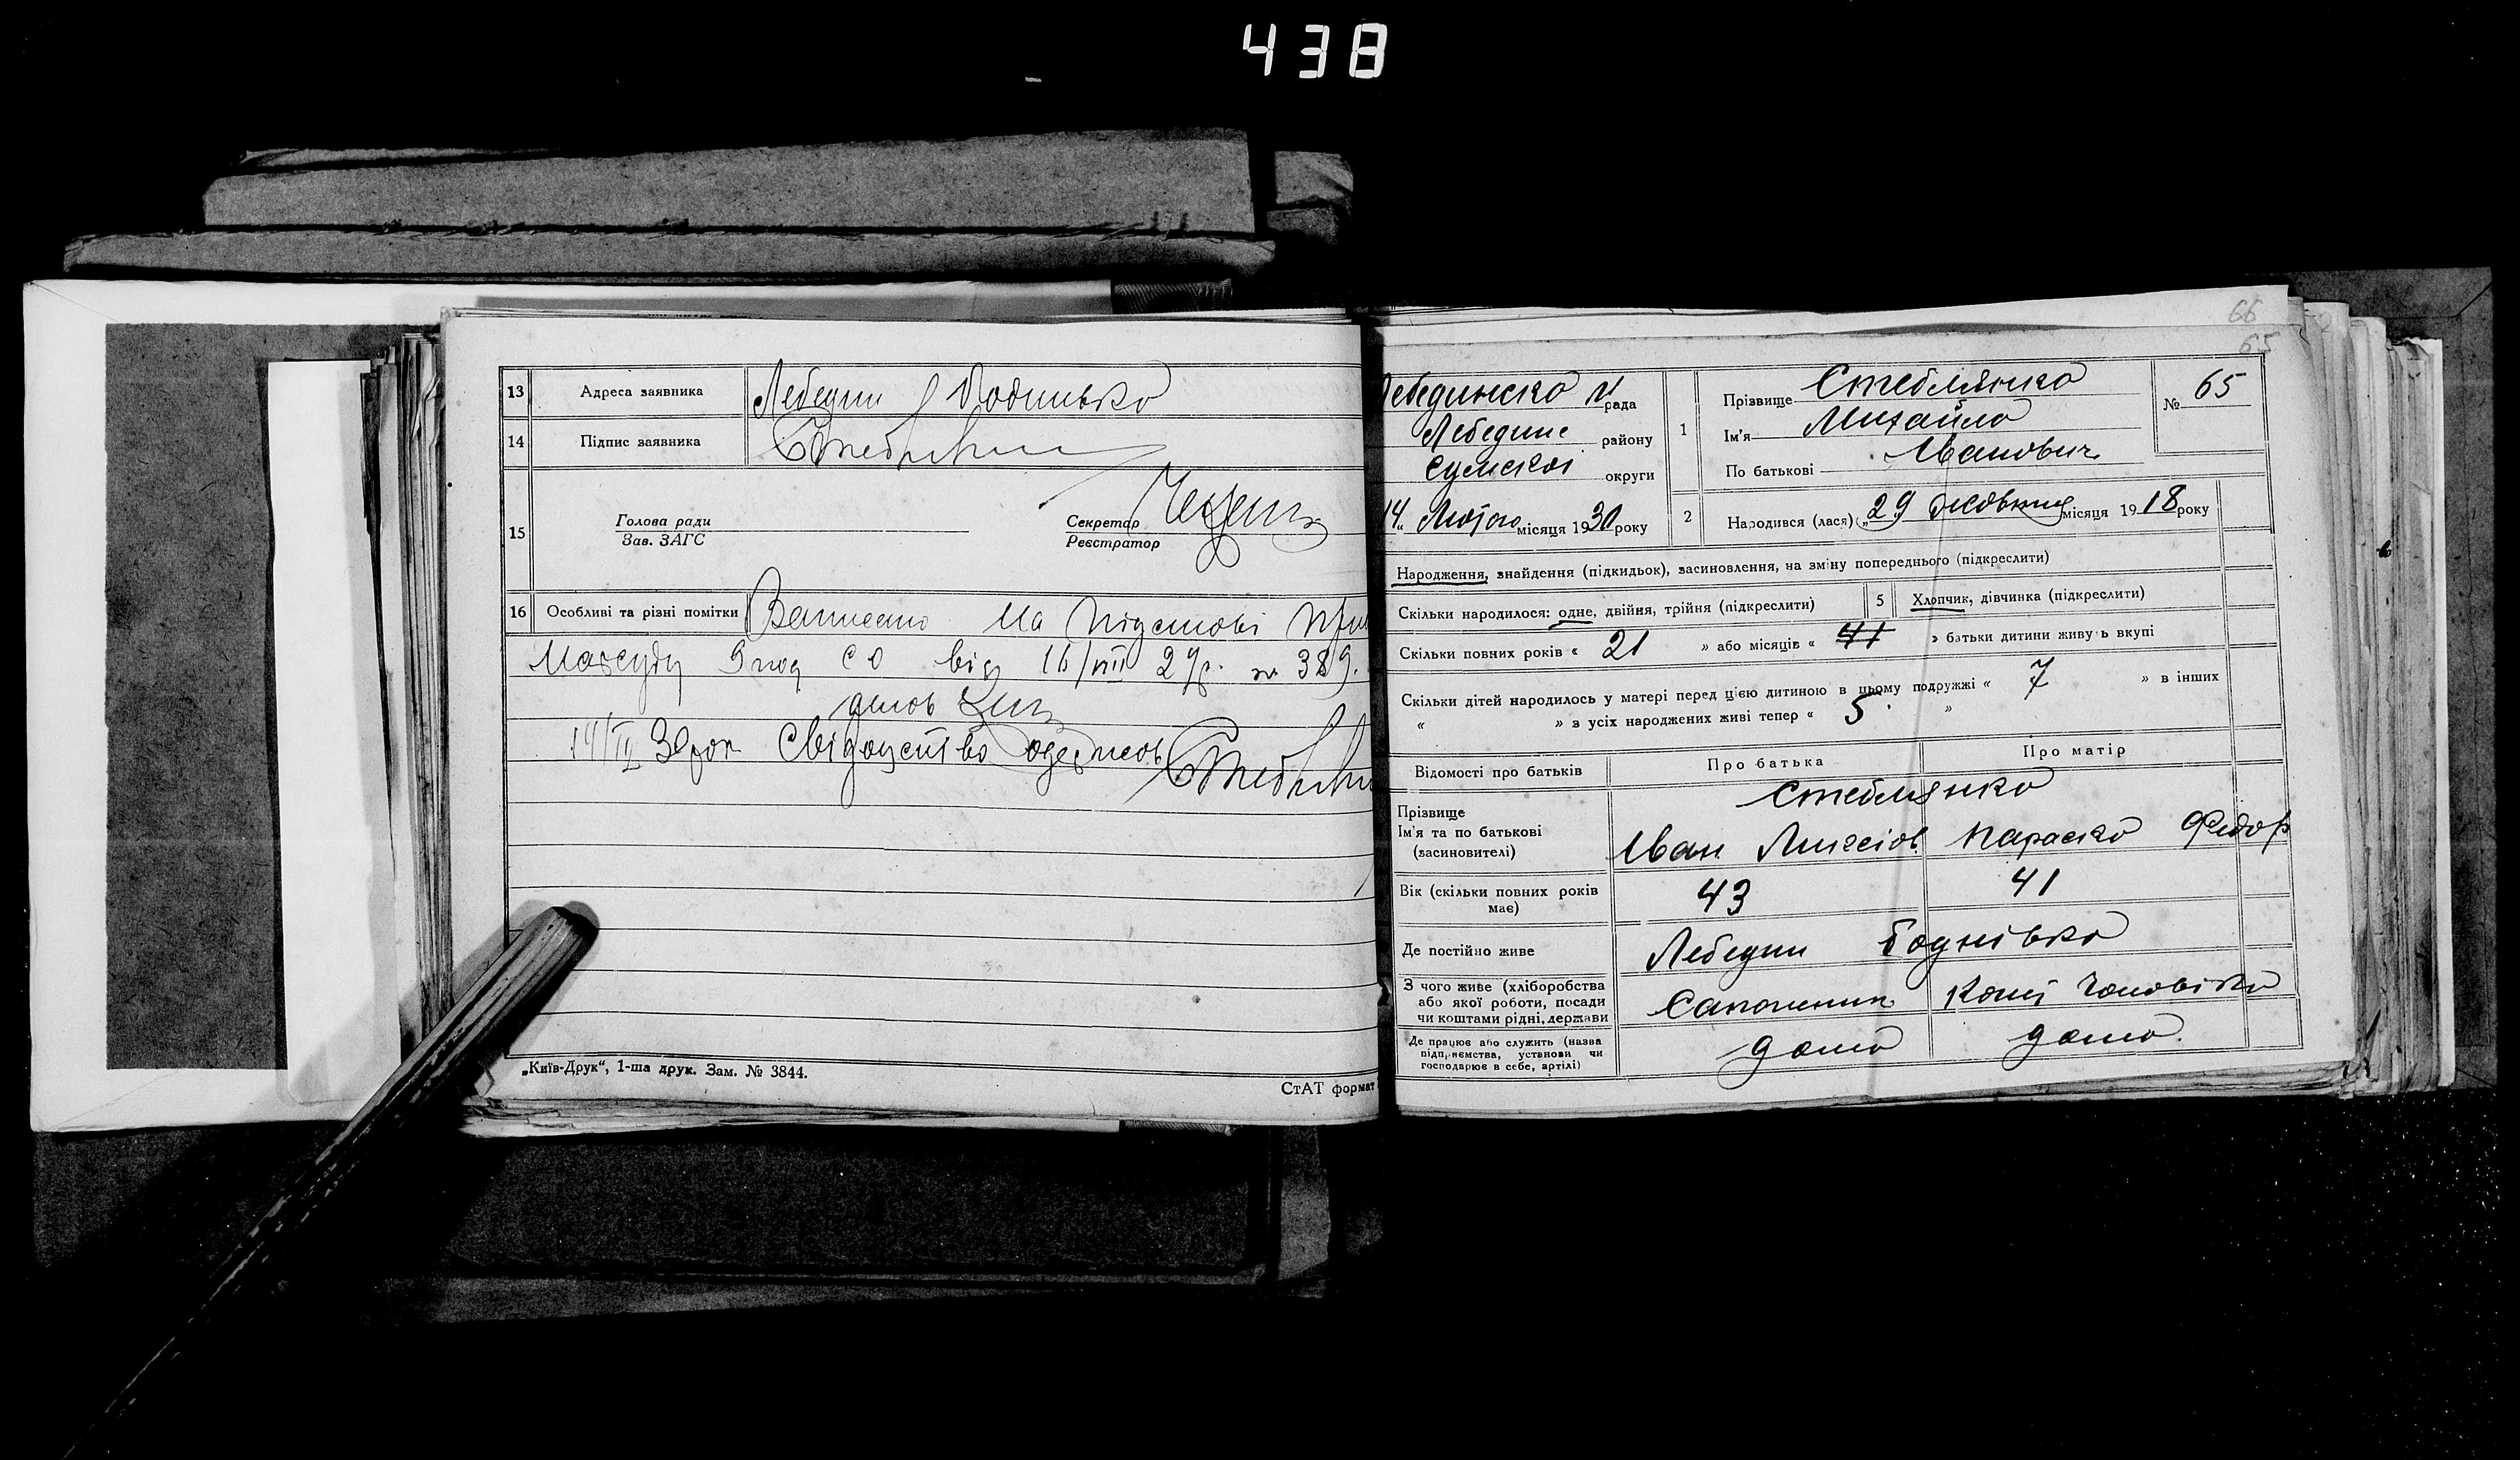 438
13 Адреса заявника Лебедин
14 Підпис заявника
15 Голова ради
Зав. ЗАГС
Секретар
Реєстратор
16 Особливі та різні помітки Записано на підставі
від 16/VIII 29р. № 389.
14/IV 30 рок Свідоцтво одержав
„Київ-Друк“, 1-ша друк. Зам. № 3844.
СтАТ формат
66
65
рада
Лебедине району
Сумскої округи
14 Лютого місяця 1930 року
1 Прізвище Стеблянко
Ім'я Михайло
По батькові Иванович
№ 65
2 Народився (лася) „29 жовтня місяця 1918 року
Народження, знайдення (підкидьок), засиновлення, на зміну попереднього (підкреслити)
Скільки народилося: одне, двійня, трійня (підкреслити) 5 Хлопчик, дівчинка (підкреслити)
Скільки повних років « 21 » або місяців « 41 » батьки дитини живуть вкупі
Скільки дітей народилось у матері перед цією дитиною в цьому подружжі « 7 » в інших
« » з усіх народжених живі тепер « 5 »
Відомості про батьків Про батька Про матір
Прізвище Стеблянко
Ім'я та по батькові Іван Параска Федор
(засиновителі)
Вік (скільки повних років має) 43 41
Де постійно живе Лебедин
З чого живе (хліборобства
або якої роботи, посади
чи коштами рідні, держави Сапожник Кошт чоловіка
Де працює або служить (назва
підприємства, установи чи
господарює в себе, артілі) дома дома